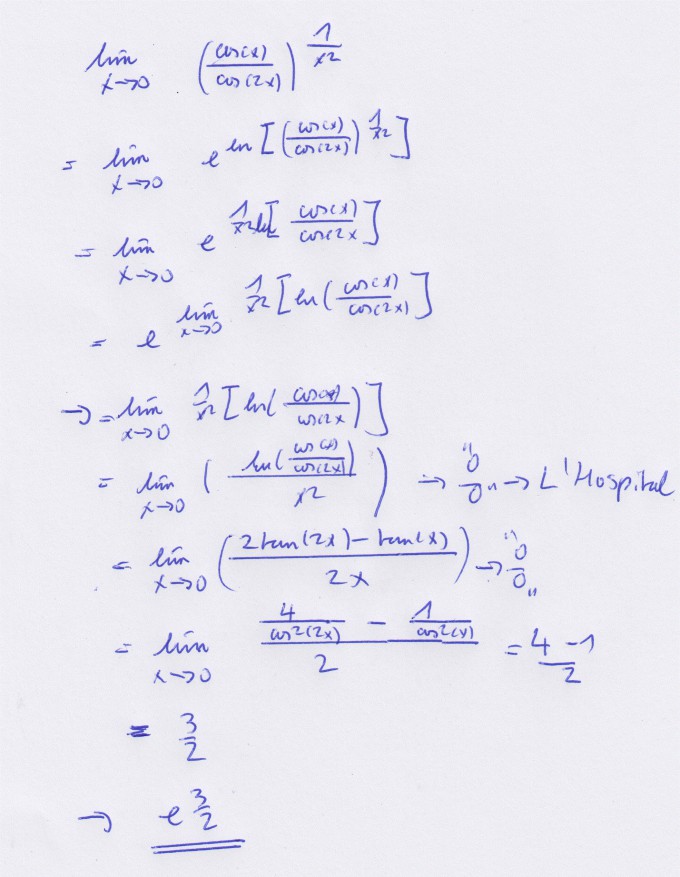 lim x→0 (cos(x)/cos(2x))^(1/x²)
= lim x→0 e^(ln[(cos(x)/cos(2x))^(1/x²)])
= lim x→0 e^(1/x² ln[cos(x)/cos(2x])
= e^(lim x→0 1/x² [ln(cos(x)/cos(2x)])
→ = lim x→0 1/x² [ln(cos(x)/cos(2x)]
= lim x→0 (ln(cos(x)/cos(2x))/x²) → "0/0" → L'Hospital
= lim x→0 (2tan(2x)-tan(x)/2x) → "0/0"
= lim x→0 (4/cos²(2x) - 1/cos²(x))/2 = (4-1)/2
= 3/2
→ e^(3/2)